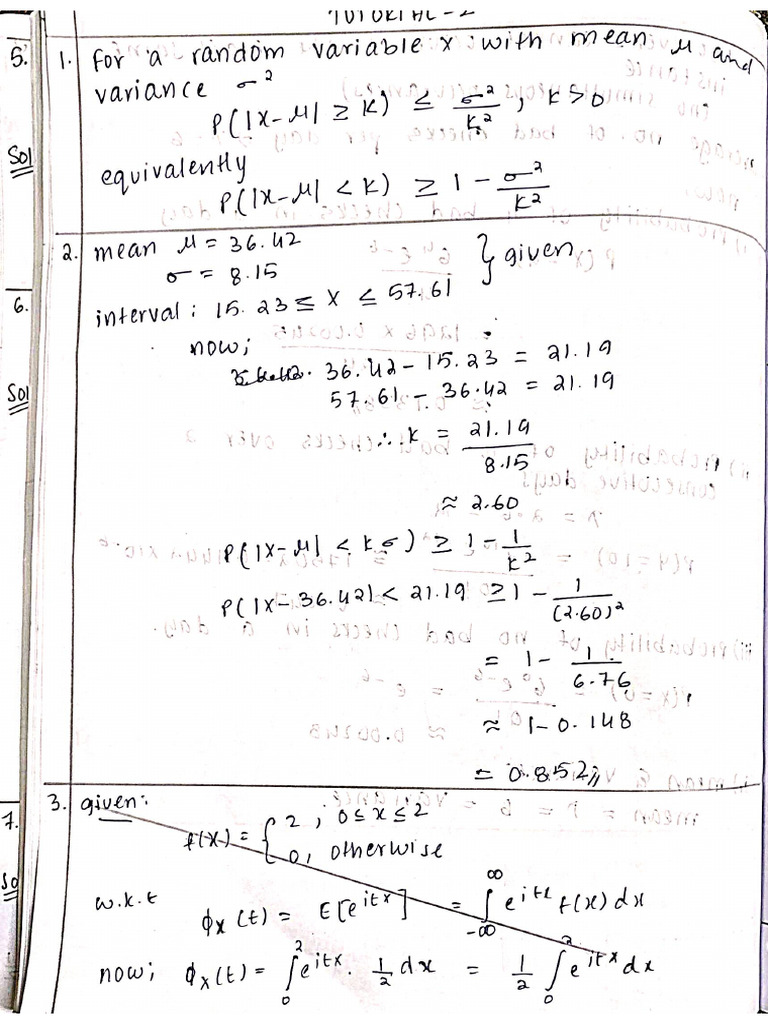 TUTORIAL-2
5.
1. for a random variable x with mean μ and
variance σ²
P(|x-μ| ≥ k) ≤ σ²/k², k>0
Sol
equivalently
P(|x-μ| < k) ≥ 1 - σ²/k²
2. mean μ = 36.42
σ = 8.15 } given
6.
interval: 15.23 ≤ x ≤ 57.61
now;
36.42 - 15.23 = 21.19
57.61 - 36.42 = 21.19
Sol
∴ k = 21.19/8.15
≈ 2.60
P(|x-μ| < kσ) ≥ 1 - 1/k²
P(|x-36.42| < 21.19 ≥ 1 - 1/(2.60)²
= 1 - 1/6.76
≈ 1-0.148
= 0.852//
3. given:
7.
f(x) = { 2, 0≤x≤2
0, otherwise
So
w.k.t ϕx(t) = E[e^itx] = ∫_-∞^∞ e^itx f(x) dx
now; ϕx(t) = ∫_0^2 e^itx. 1/2 dx = 1/2 ∫_0^2 e^itx dx